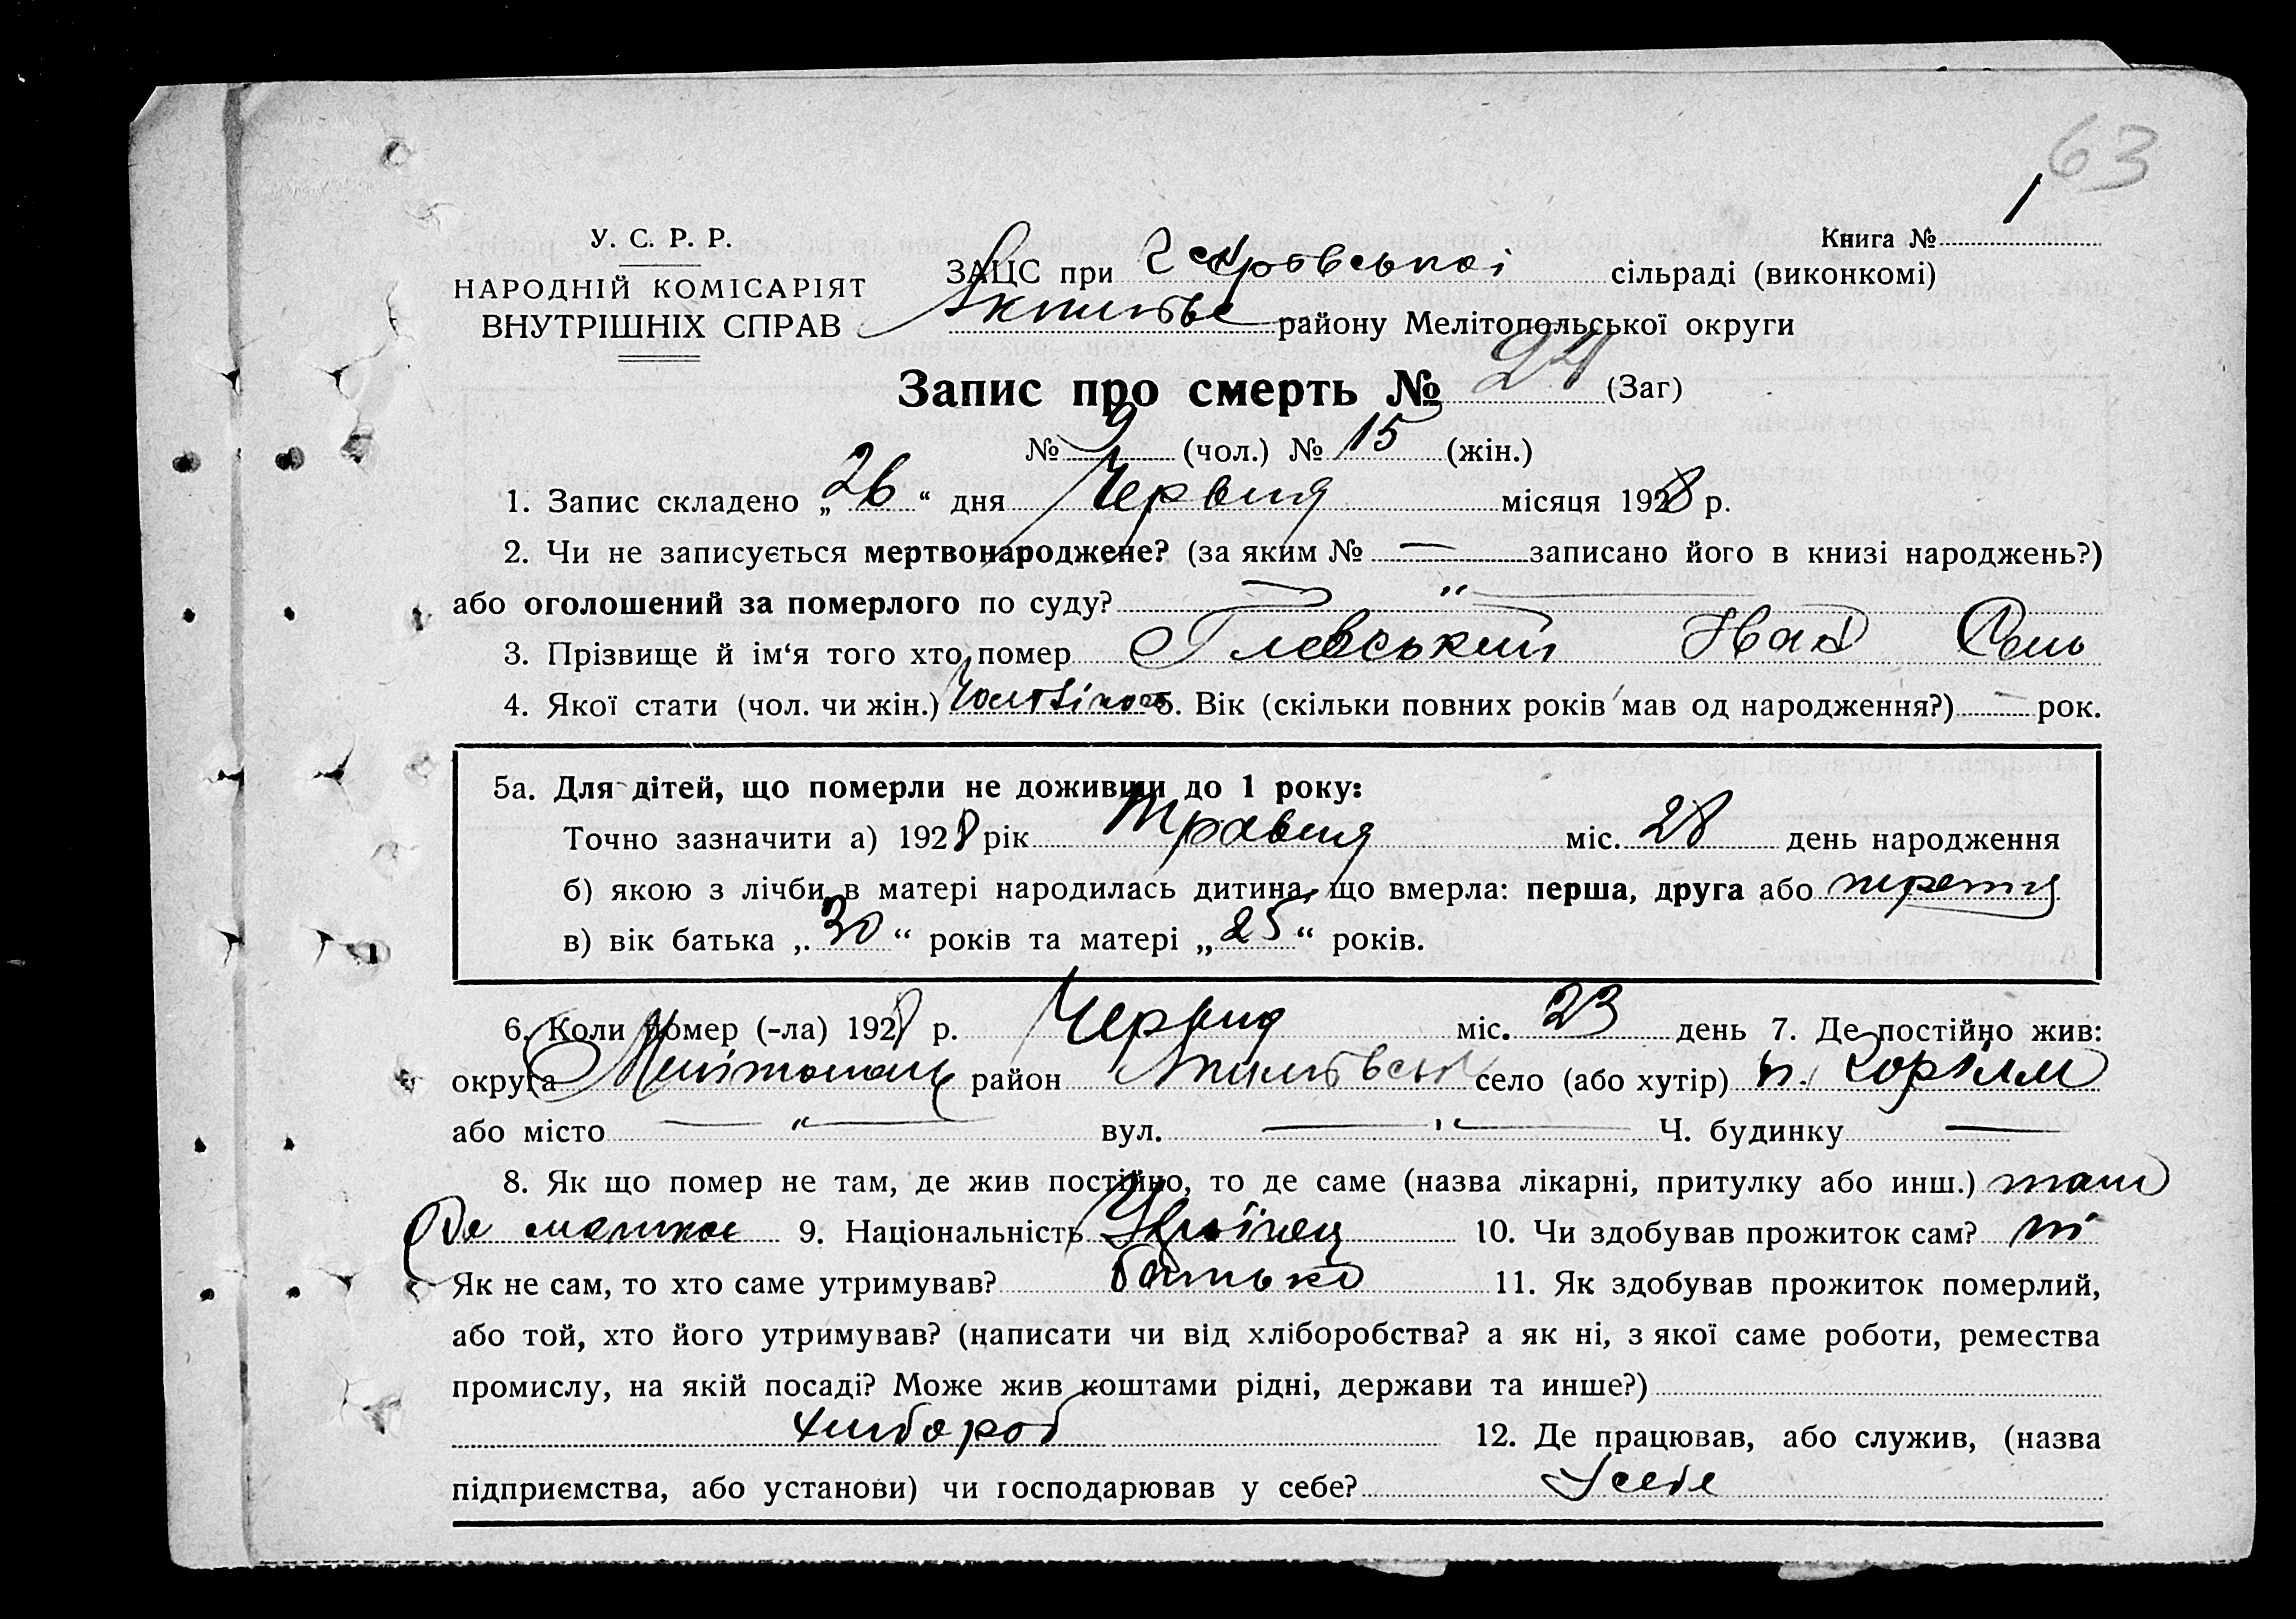 63
У. С. Р. Р.
Книга № 1
НАРОДНІЙ КОМІСАРІЯТ
ВНУТРІШНІХ СПРАВ
ЗАЦС при сільраді (виконкомі)
району Мелітопольської округи
Запис про смерть № 24 (Заг)
№ 9 (чол.) № 15 (жін.)
1. Запис складено „26“ дня Червня місяця 1928 р.
2. Чи не записується мертвонароджене? (за яким № — записано його в книзі народжень?)
або оголошений за померлого по суду? — " —
3. Прізвище й ім‘я того хто помер
4. Якої стати (чол. чи жін.) 5. Вік (скільки повних років мав од народження?) — рок.
5а. Для дітей, що померли не доживши до 1 року:
Точно зазначити а) 1928 рік Травня міс. 28 день народження
б) якою з лічби в матері народилась дитина, що вмерла: перша, друга або третя
в) вік батька „30“ років та матері „25“ років.
6. Коли помер (-ла) 1928 р. Червня міс. 23 день 7. Де постійно жив:
округа Мелітополь район село (або хутір)
або місто — " — вул. — " — Ч. будинку —
8. Як що помер не там, де жив постійно, то де саме (назва лікарні, притулку або инш.) там
9. Національність Українец 10. Чи здобував прожиток сам? ні
Як не сам, то хто саме утримував? батько 11. Як здобував прожиток померлий,
або той, хто його утримував? (написати чи від хліборобства? а як ні, з якої саме роботи, ремества
промислу, на якій посаді? Може жив коштами рідні, держави та инше?)
хлібороб 12. Де працював, або служив, (назва
підприємства, або установи) чи господарював у себе? У себе